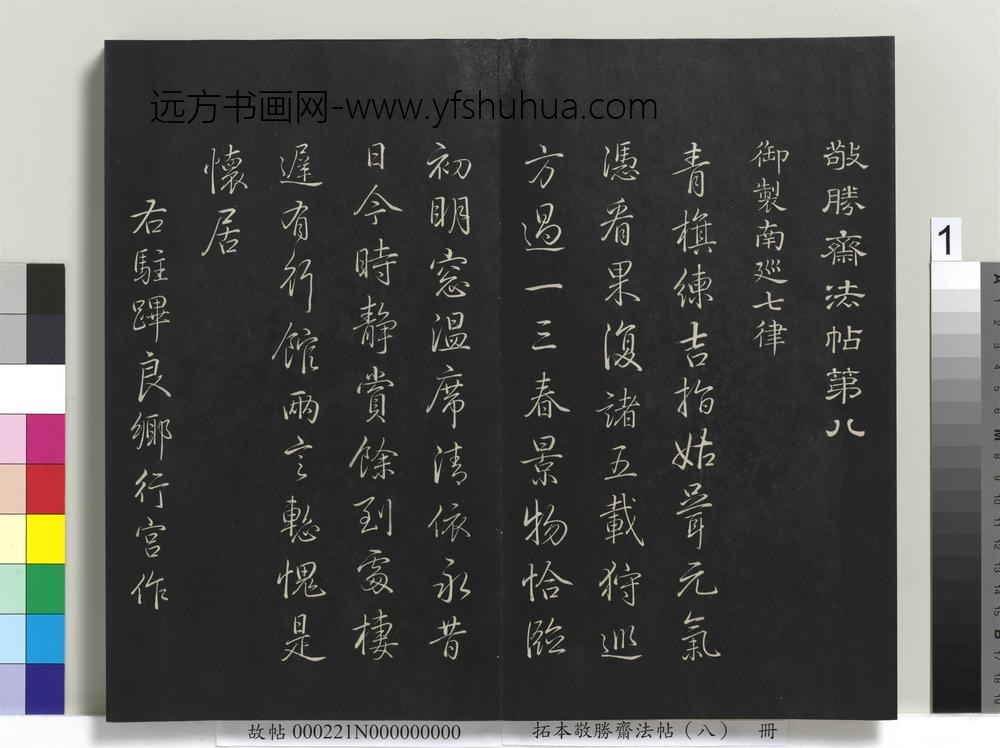 远方书画网-www.yfshuhua.com
敬勝齋法帖第八
御製南巡七律
青旗練吉指姑胥元氣
憑看果復諸五載狩巡
方過一三春景物恰臨
初明窓温席清依永昔
日今時静賞餘到處棲
遲有行館兩言慙愧是
懷居
右駐蹕良鄉行宮作
1
故帖 000221N000000000
拓本敬勝齋法帖（八） 冊